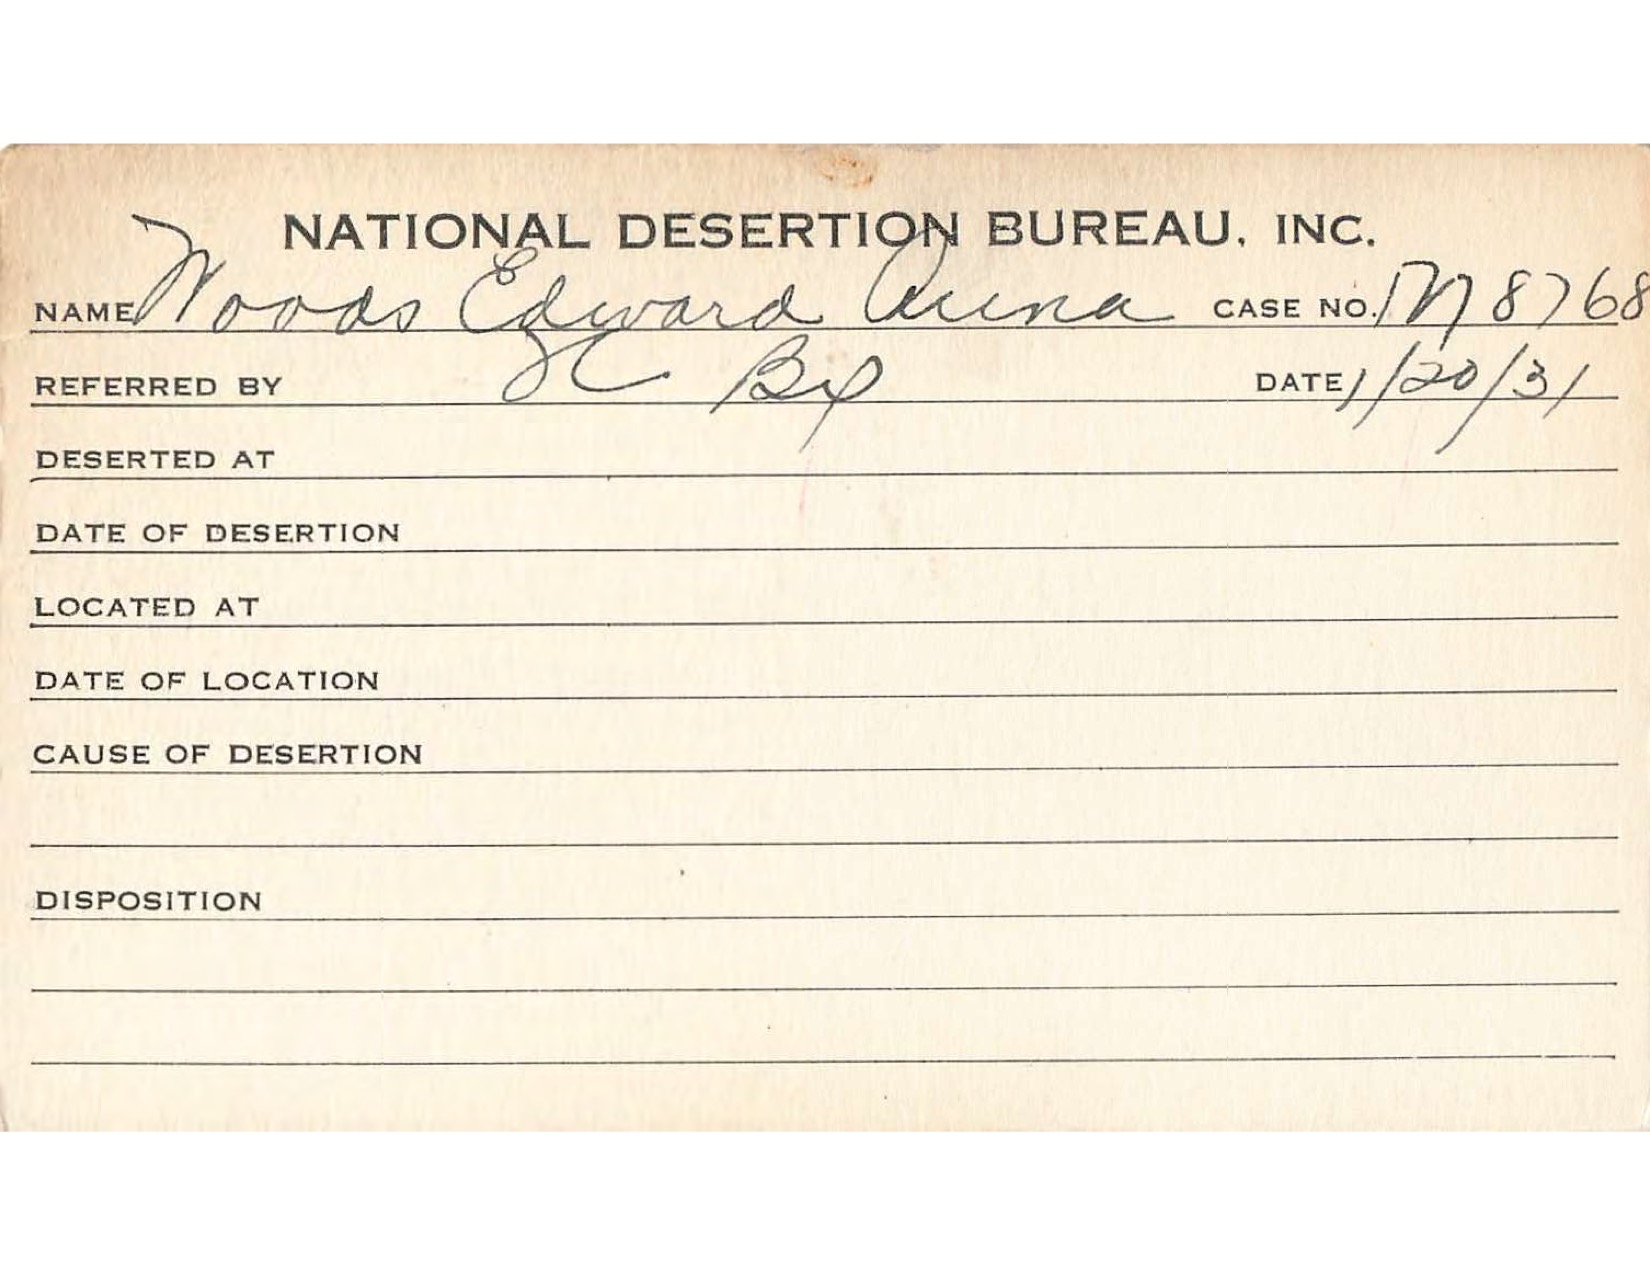 NATIONAL DESERTION BUREAU, INC.
NAME Woods Edward Anna CASE NO. M 8768
REFERRED BY Bx DATE 1/20/31
DESERTED AT
DATE OF DESERTION
LOCATED AT
DATE OF LOCATION
CAUSE OF DESERTION
DISPOSITION